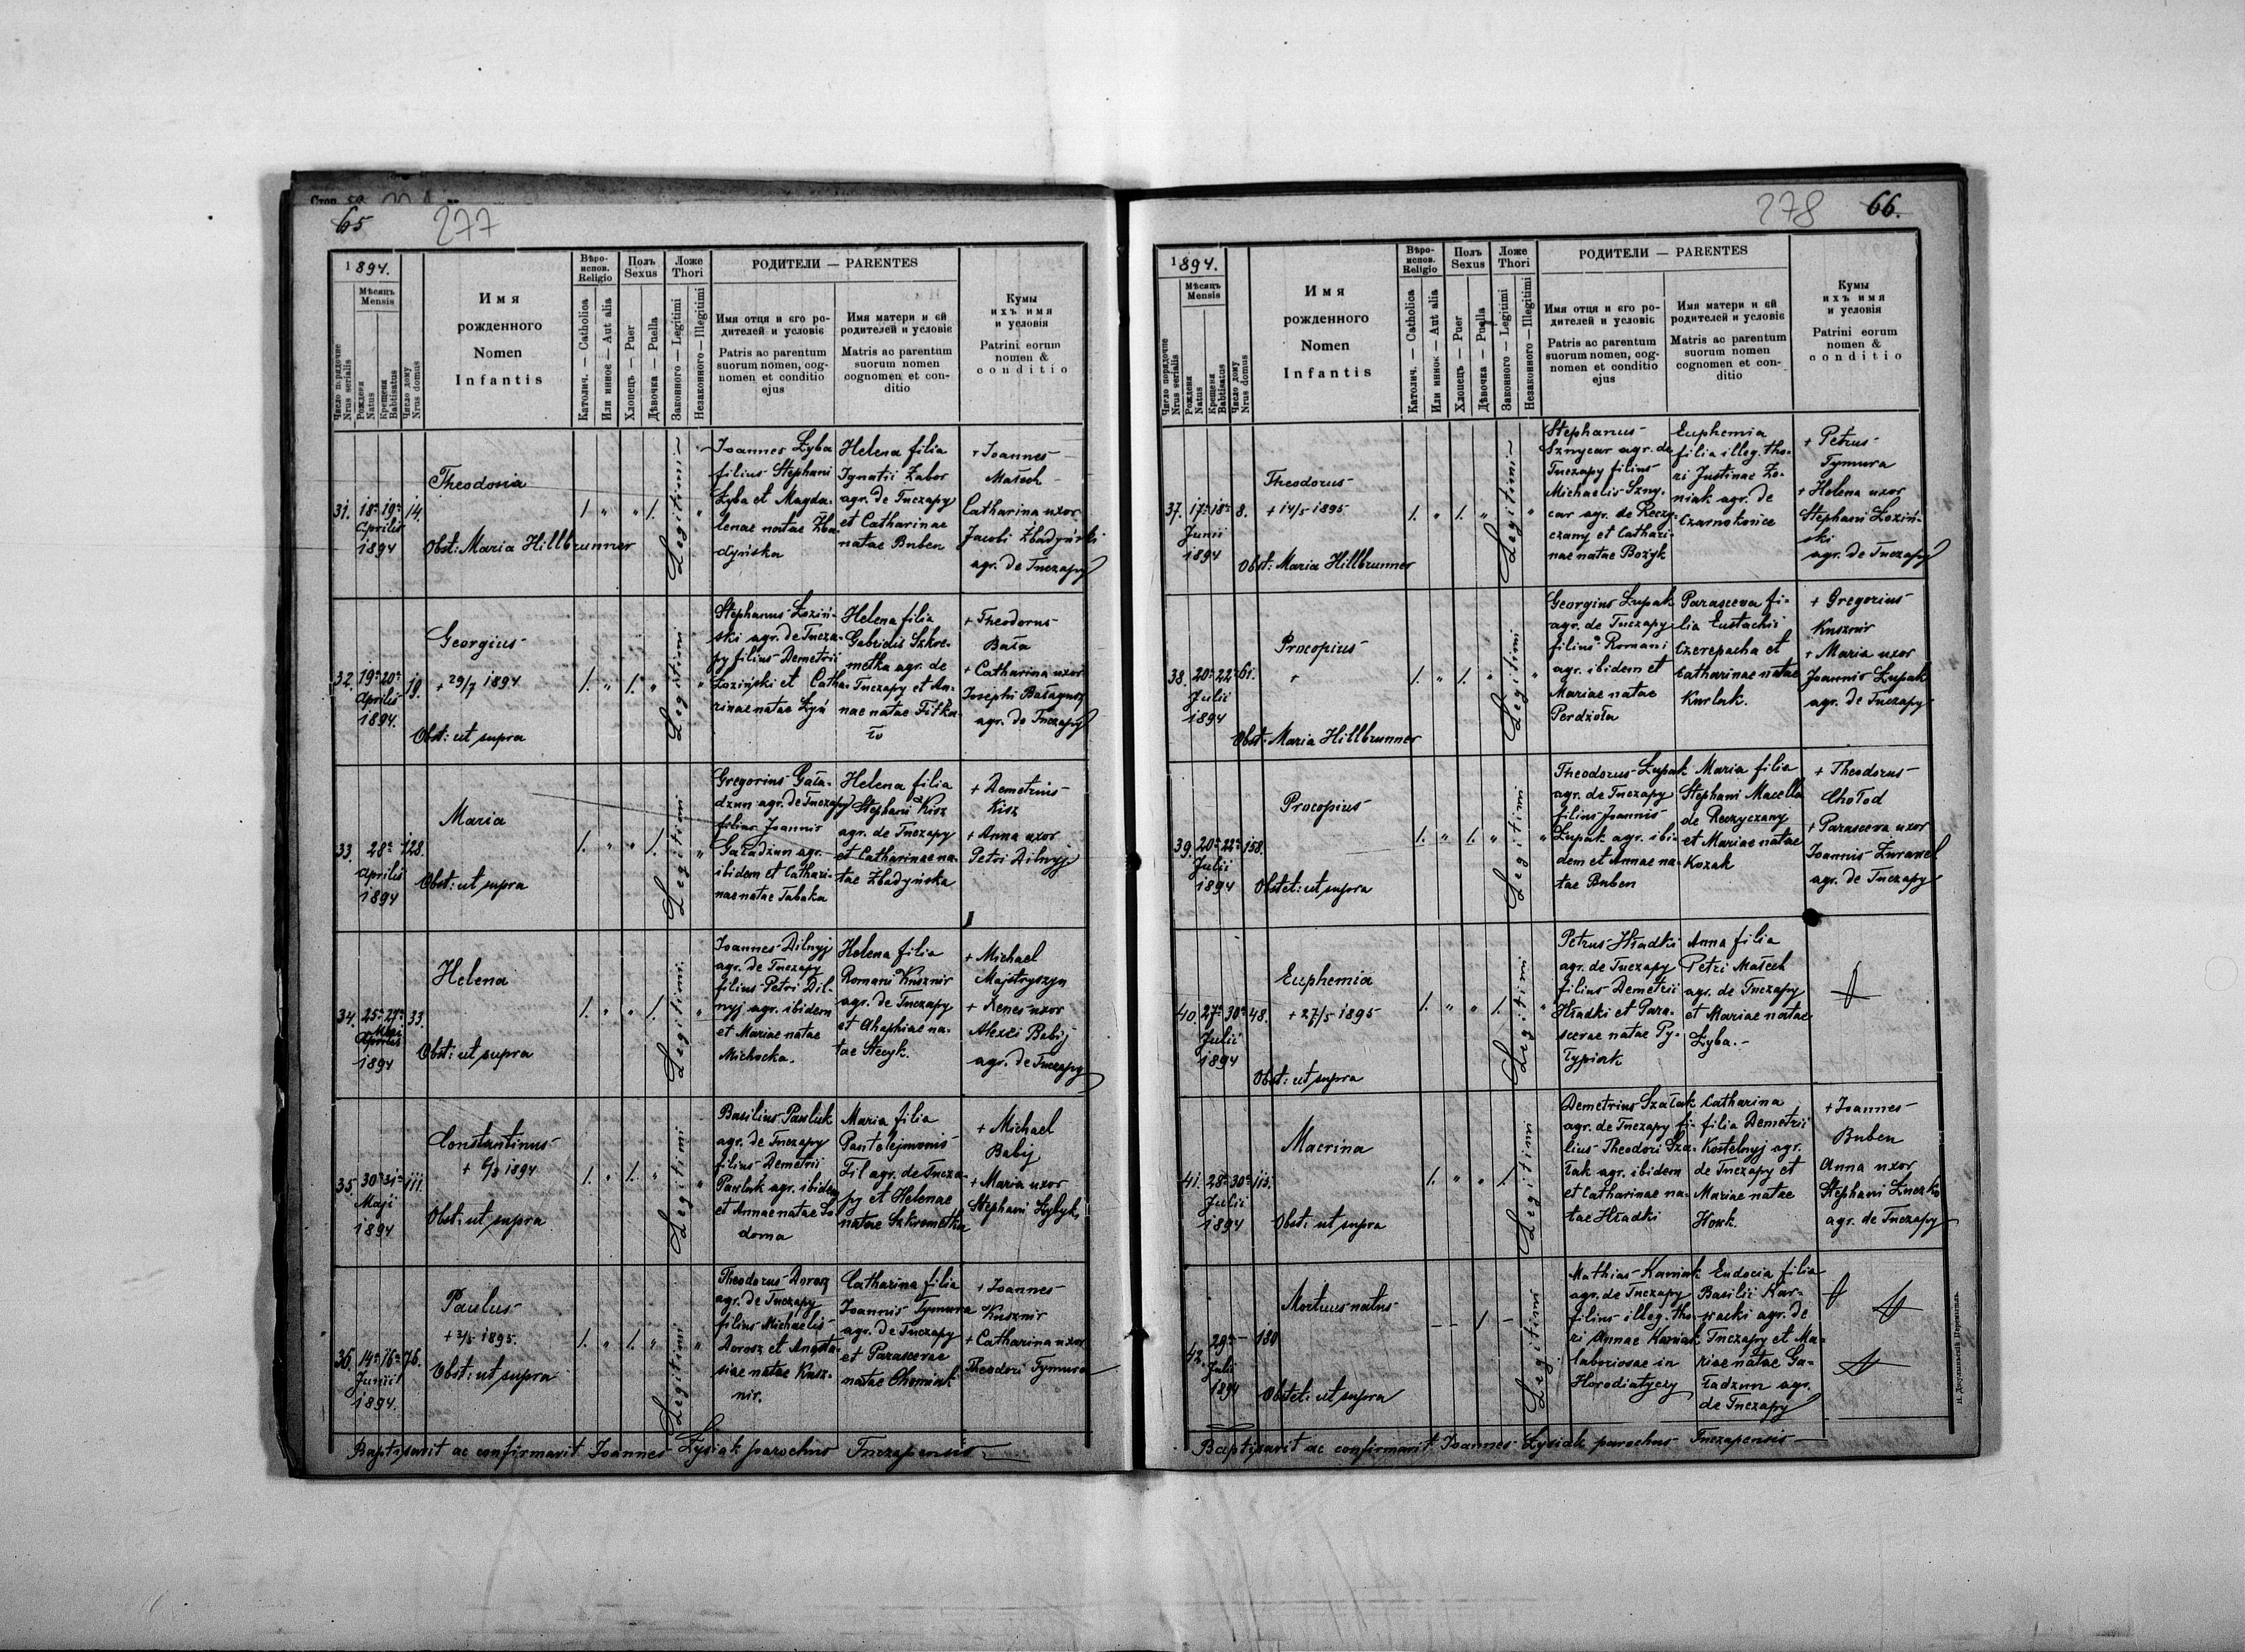 65
277
1894.
Мѣсяць
Mensis
Число порядочне
Nrus serialis
Рожденя
Natus
Крещеня
Babtisatus
Число дому
Nrus domus
Имя
рожденного
Nomen
Infantis
Вѣро-
испов.
Religio
Католич. — Catholica
Или инное — Aut alia
Полъ
Sexus
Хлопець — Puer
Дѣвочка — Puella
Ложе
Thori
Законного — Legitimi
Незаконного — Illegitimi
РОДИТЕЛИ — PARENTES
Имя отця и его ро-
дителей и условіє
Patris ac parentum
suorum nomen, cog-
nomen et conditio
ejus
Имя матери и єй
родителей и условіє
Matris ac parentum
suorum nomen
cognomen et con-
ditio
Кумы
ихъ имя
и условія
Patrini eorum
nomen &
conditio
31. 18ª 19ª 14.
Aprilis
1894
Theodosia
Obst: Maria Hillbrunner
Legitimi
Joannes Łyba
filius Stephani
Łyba et Magda-
lenae natae Zba-
dyńska
Helena filia
Ignatii Zabor
agr. de Tuczapy
et Catharinae
natae Buben
+ Joannes
Małech
Catharina uxor
Jacobi Zbadyński
agr. de Tuczapy
32. 19ª 20ª 19.
Aprilis
1894.
Georgius
+ 29/7 1894
Obst: ut supra
Legitimi
Stephanus Łoziń-
ski agr. de Tucza-
py filius Demetrii
Łoziński et Catha-
rinae natae
Helena filia
Gabrielis Szkre-
metka agr. de
Tuczapy et An-
nae natae Fitka-
+ Theodorus
Bała
+ Catharina uxor
Josephi Bałagusz
agr. de Tuczapy
33. 28ª 128.
Aprilis
1894
Maria
Obst: ut supra
Legitimi
Gregorius Gała-
dzun agr. de Tuczapy
filius Joannis
Gaładzun agr.
ibidem et Cathari-
nae natae Tabaka
Helena filia
Stephani Kisz
agr. de Tuczapy
et Catharinae na-
tae Zbadyńska
+ Demetrius
Kisz
+ Anna uxor
Petri Dilnyj
34. 25ª 27ª 33.
Maii
Aprilis
1894
Helena
Obst: ut supra
Legitimi
Joannes Dilnyj
agr. de Tuczapy
filius Petri Dil-
nyj agr. ibidem
et Mariae natae
Michocka.
Helena filia
Romani Kusznir
agr. de Tuczapy
et Ahaphiae na-
tae Stecyk.
+ Michael
Majstryszyn
+ Xenes uxor
Alexei Babij
agr. de Tuczapy
35. 30ª 31ª 111.
Maji
1894
Constantinus
+ 6/8 1894
Obst: ut supra
Legitimi
Basilius Pawluk
agr. de Tuczapy
filius Demetrii
Pawluk agr. ibidem
et Annae natae So-
doma
Maria filia
Pantelejmonis
Fil agr. de Tucza-
py et Helenae
natae Szkremetka
+ Michael
Babij
+ Maria uxor
Stephani Kybyk
36. 14ª 16ª 76.
Junii
1894.
Paulus
+ 3/5 1895.
Obst: ut supra
Legitimi
Theodorus Dorosz
agr. de Tuczapy
filius Michaelis
Dorosz et Anasta-
siae natae Kusz-
nir.
Catharina filia
Joannis Tymura
agr. de Tuczapy
et Parascevae
natae Chomiak
+ Joannes
Kusznir
+ Catharina uxor
Theodori Tymura
Baptisavit ac confirmavit Joannes Łysiak parochus Tuczapensis
278
66.
1894.
Мѣсяць
Mensis
Число порядочне
Nrus serialis
Рожденя
Natus
Крещеня
Babtisatus
Число дому
Nrus domus
Имя
рожденного
Nomen
Infantis
Вѣро-
испов.
Religio
Католич. — Catholica
Или инное — Aut alia
Полъ
Sexus
Хлопець — Puer
Дѣвочка — Puella
Ложе
Thori
Законного — Legitimi
Незаконного — Illegitimi
РОДИТЕЛИ — PARENTES
Имя отця и его ро-
дителей и условіє
Patris ac parentum
suorum nomen, cog-
nomen et conditio
ejus
Имя матери и єй
родителей и условіє
Matris ac parentum
suorum nomen
cognomen et con-
ditio
Кумы
ихъ имя
и условія
Patrini eorum
nomen &
conditio
37. 17ª 18ª 8.
Junii
1894
Theodorus
+ 14/5 1895
Obst: Maria Hillbrunner
Legitimi
Stephanus
Sznycar agr. de
Tuczapy filius
Michaelis Szny-
car agr. de Reczy-
czany et Cathari-
nae natae Bozyk
Euphemia
filia illeg. tho-
ri Justinae Zo-
niak agr. de
Czarnokońce
+ Petrus
Tymura
+ Helena uxor
Stephani Łoziń-
ski
agr. de Tuczapy
38. 20ª 22ª 61.
Julii
1894
Procopius
Obst: Maria Hillbrunner
Legitimi
Georgius Łupak
agr. de Tuczapy
filius Romani
agr. ibidem et
Mariae natae
Perdzioła
Parasceva fi-
lia Eustachii
Czerepacha et
Catharinae natae
Kurlak.
+ Gregorius
Kusznir
+ Maria uxor
Joannis Łupak
agr. de Tuczapy
39. 20ª 22ª 158.
Julii
1894
Procopius
Obstet: ut supra
Legitimi
Theodorus Łupak
agr. de Tuczapy
filius Joannis
Łupak agr. ibi-
dem et Annae na-
tae Buben
Maria filia
Stephani Macella
de Reczyczany
et Mariae natae
Kozak
+ Theodorus
Chołod
+ Parasceva uxor
Joannis Żurawel
agr. de Tuczapy
40. 27ª 30ª 48.
Julii
1894
Euphemia
+ 27/5 1895
Obst: ut supra
Legitimi
Petrus Hładki
agr. de Tuczapy
filius Demetrii
Hładki et Para-
scevae natae Py-
łypiak
Anna filia
Petri Małech
agr. de Tuczapy
et Mariae natae
Łyba.
41. 28ª 30ª 115.
Julii
1894
Macrina
Obst: ut supra
Legitimi
Demetrius Szałak
agr. de Tuczapy fi-
lius Theodori Sza-
łak agr. ibidem
et Catharinae na-
tae Hładki
Catharina
filia Demetrii
Kostelnyj agr.
de Tuczapy et
Mariae natae
Houk.
+ Joannes
Buben
Anna uxor
Stephani Łuczko
agr. de Tuczapy
42. 29ª — 180
Julii
1894
Mortuus natus
Obstet: ut supra
Legitimi
Mathias Kaniak
agr. de Tuczapy
filius illeg. tho-
ri Annae Kaniak
laboriosae in
Horodiatyczy
Eudocia filia
Basilii Kar-
wacki agr. de
Tuczapy et Ma-
riae natae Ga-
ładzun agr.
de Tuczapy
Baptisavit ac confirmavit Joannes Łysiak parochus Tuczapensis